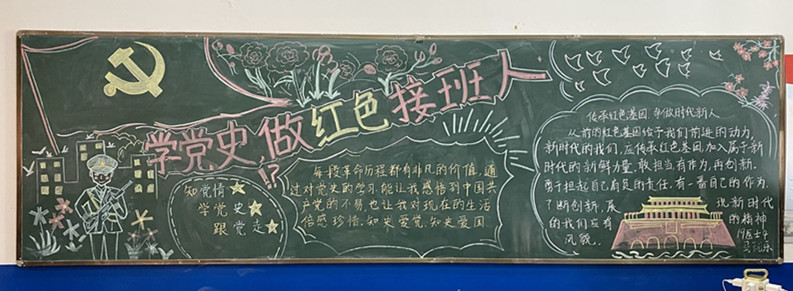 学党史,做红色接班人
!?
知党情
学党史
跟党走
每一段革命历程都有非凡的价值,通
过对党史的学习,能让我感悟到中国共
产党的不易,也让我对现在的生活
倍感珍惜。知史爱党,知史爱国
传承红色基因,争做时代新人
从前的红色基因给予我们前进的动力,
新时代的我们,应传承红色基因,加入属于新
时代的新鲜力量,敢担当,有作为,再创新。
勇于担起自己肩负的责任,有一番自己的作为,
了断创新,展现新时代
的我们应有的精神
风貌。